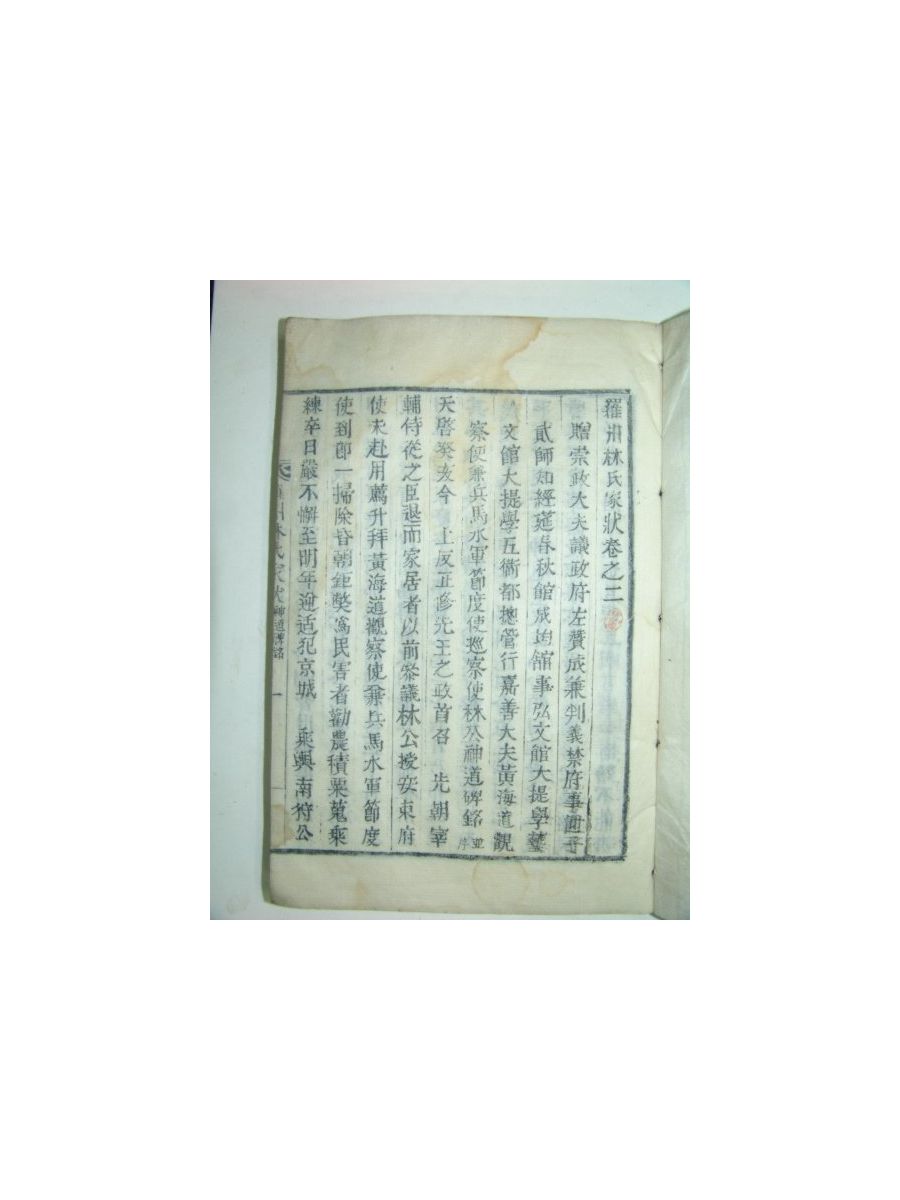 羅州林氏家狀卷之二
贈崇政大夫議政府左贊成兼判義禁府事世子
貳師知經筵春秋館成均館事弘文館大提學藝
文館大提學五衛都摠管行嘉善大夫黃海道觀
察使兼兵馬水軍節度使巡察使林公神道碑銘 並序
天啓癸亥今 上反正修先王之政首召 先朝宰
輔侍從之臣退而家居者以前參議林公授安東府
使未赴用薦升拜黃海道觀察使兼兵馬水軍節度
使到卽一掃除昏朝鉅弊爲民害者勸農積粟蒐乘
練卒日嚴不懈至明年迎适犯京城 乘輿南狩公
州林氏家狀 神道碑銘 一